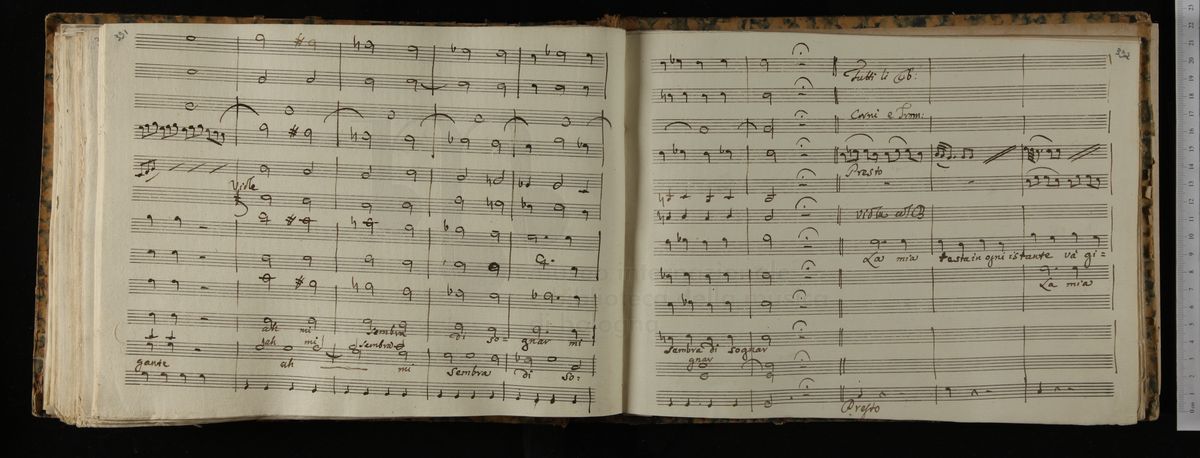 391
Viole
ah mi sembra di so- gnar mi
ah mi sembra
gante ah mi sembra di so=
Tutti li
Corni e Trom:
Presto
Viola col B
La mia testa in ogni istante và gi=
La mia
sembra di sognar
gnar
Presto